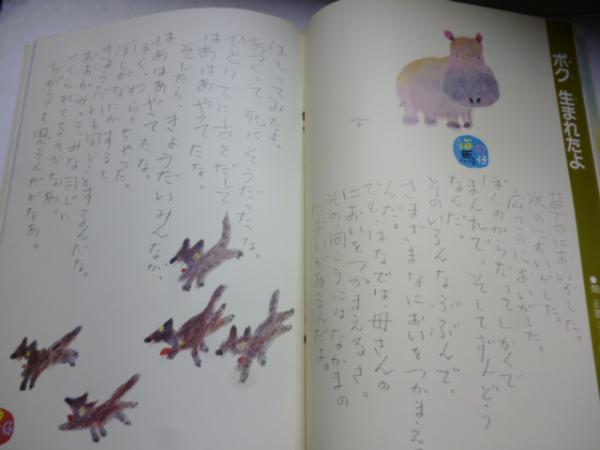 ボク 生まれたよ
海馬の仔
草のにおいがした。
水のにおいがした。
広さのにおいがした。
ぼくのからだってしかくで
まんれで、そしてずんどう
なんだ。
そのいろんなぶぶんで、
さまざまなにおいをつかまえ
んだ。
でも、はなでは、母さんの
においをつかまえるさ。
その向こうにはなかまの
においがあるんだよ。
はしってみたよ。
あつくて、死にそうだったな。
ひとりでに舌をだして
はあはあやってたな。
そしたら、きょうだいみんなが、
はあはあやってたな。
ぼく、わらっちゃった。
ぼくがなにかすると、
きょうだいも同じことするんだな。
おおかみって、みな同じに
つくられてるのかなあ。
ちがうと思うんだがなあ。
仔